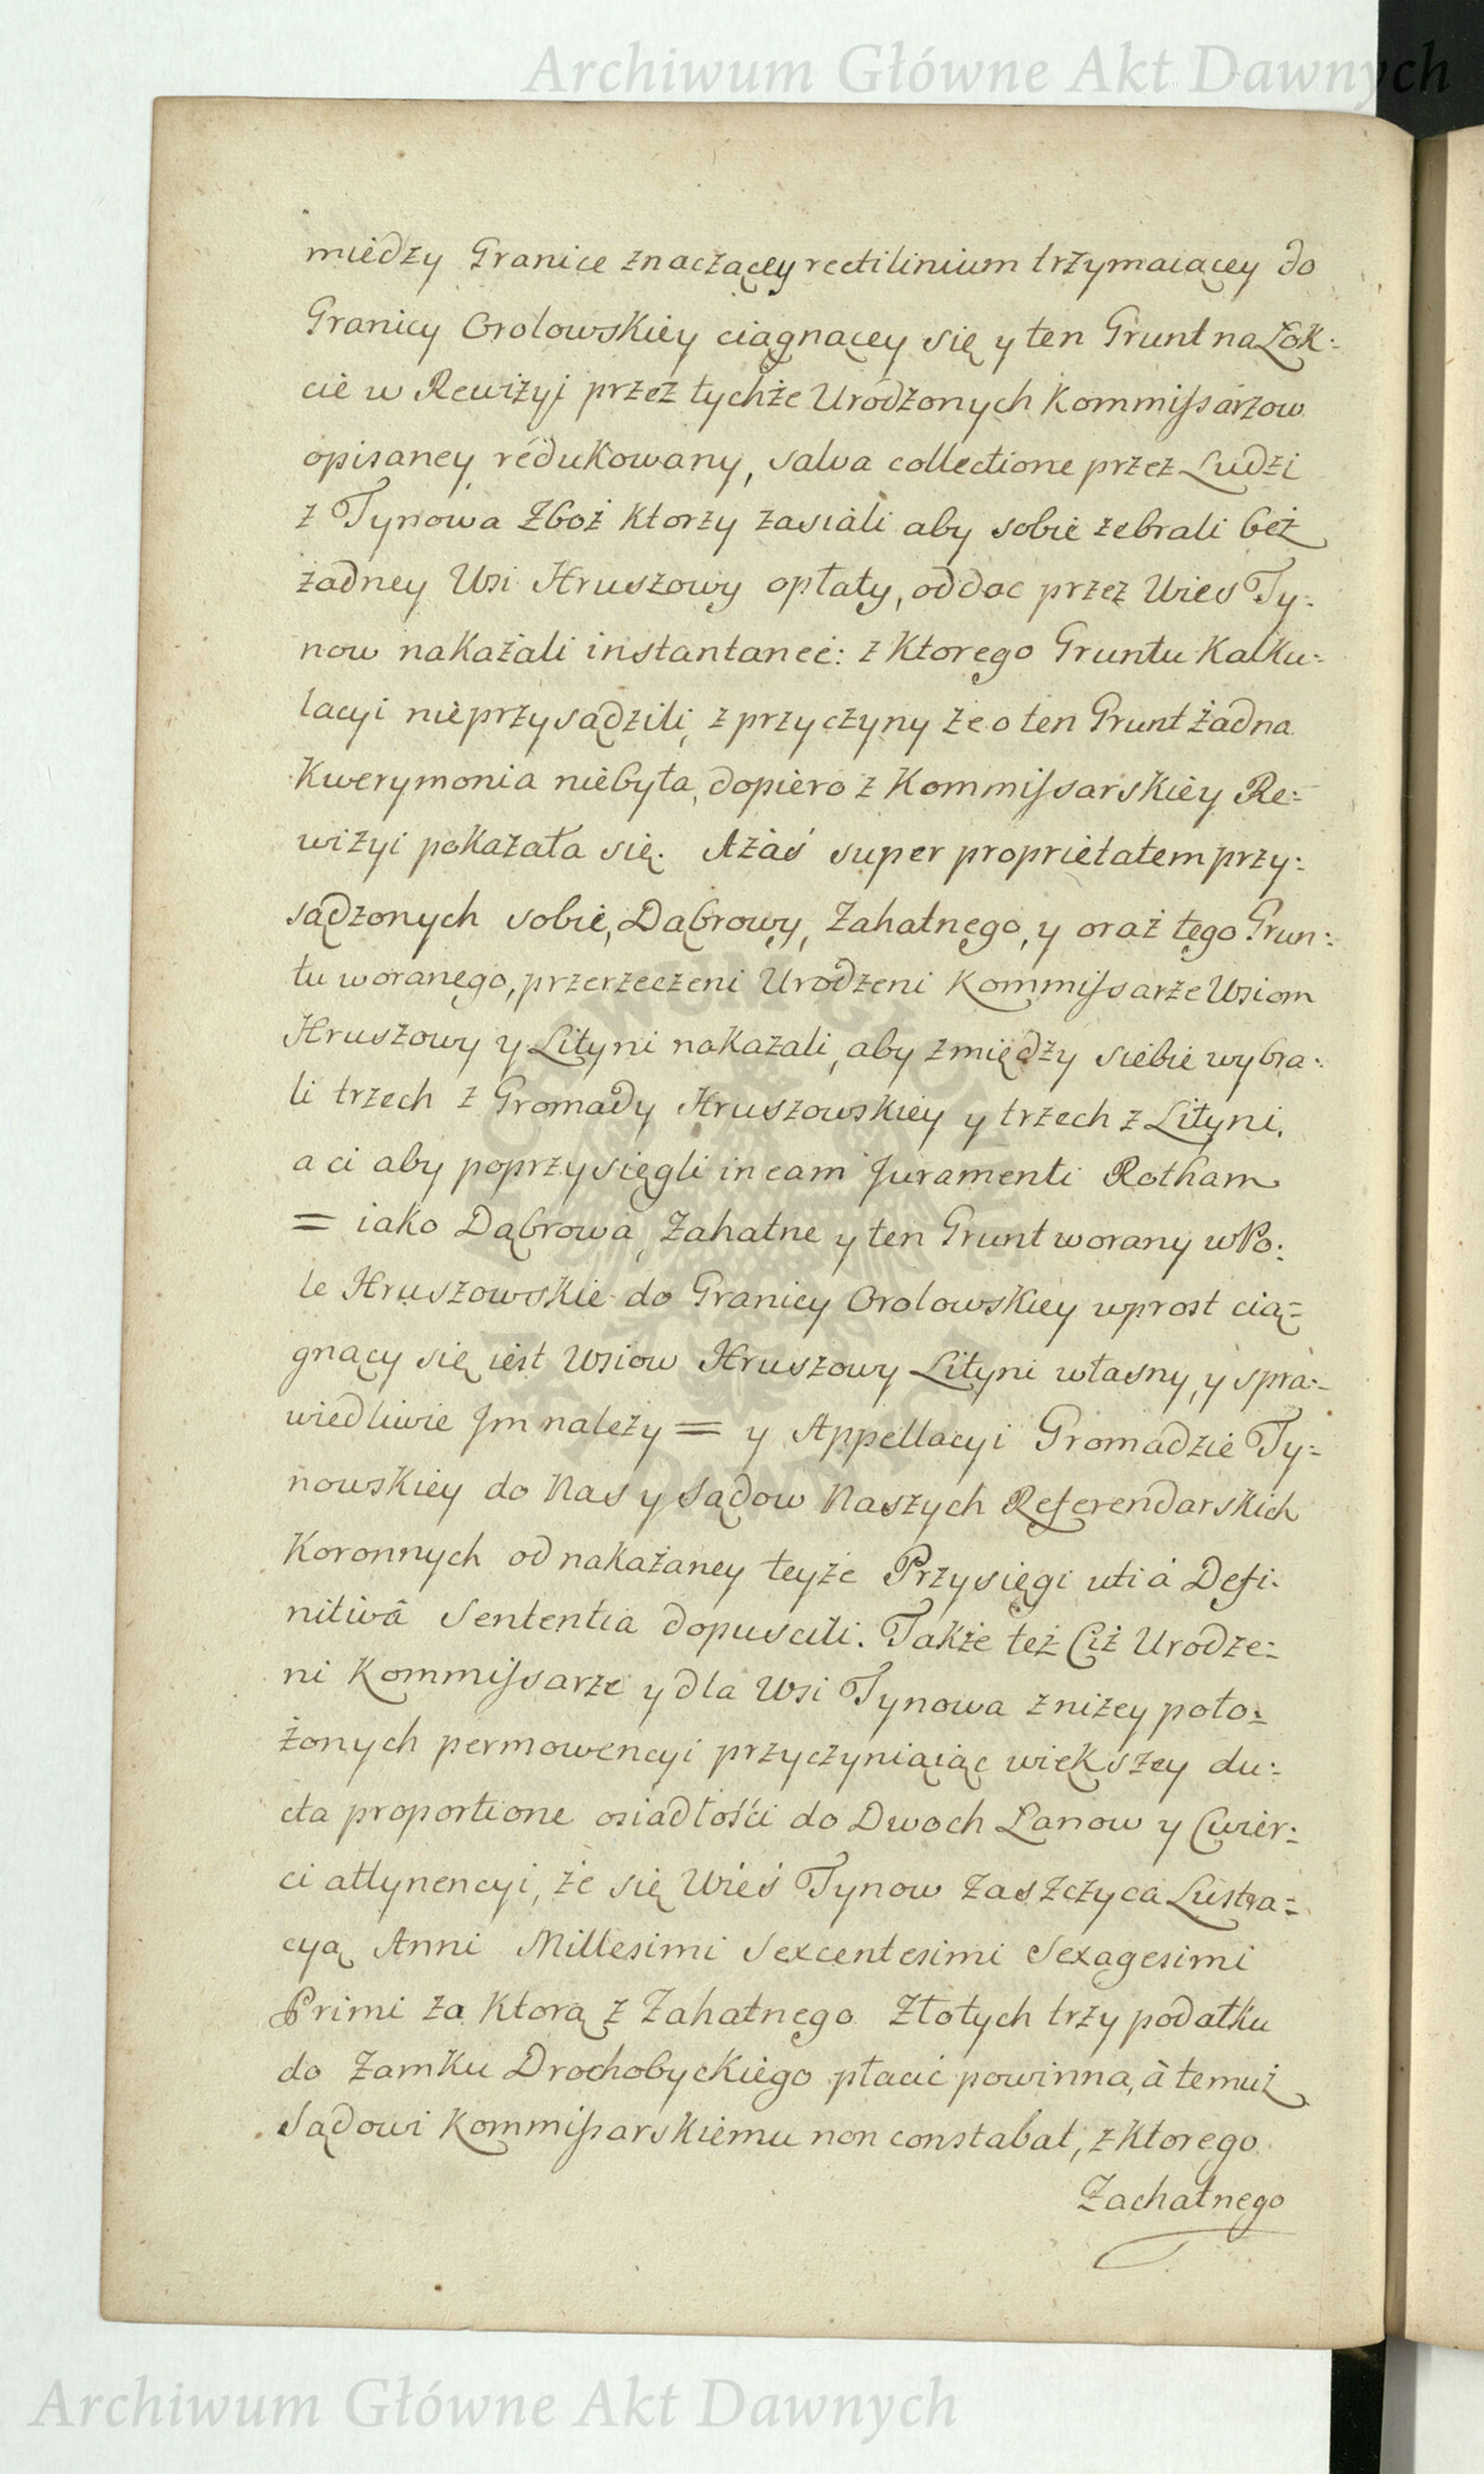 Archiwum Główne Akt Dawnych
miedzy Granice znaczącey rectilinium trzymaiącey do
Granicy Orolowskiey ciągnącey się y ten Grunt na Łok:
cie w Rewizyi przez tychże Urodzonych Kommissarzow
opisaney redukowany, salva collectione przez Ludzi
z Tynowa Zboż ktorzy zasiali aby sobie zebrali bez
żadney Wsi Hruszowy opłaty, oddac przez Wies Ty:
now nakazali instantanee: z ktorego Gruntu Kalku:
lacyi nieprzysądzili, z przyczyny że o ten Grunt żadna
Kwerymonia niebyła, dopiero z Kommissarskiey Re:
wizyi pokazała się. Azaś super proprietatem przy:
sądzonych sobie, Dąbrowy, Zahatnego, y oraz tego Grun:
tu woranego, przerzeczeni Urodzeni Kommissarze Wsiom
Hruszowy y Lityni nakazali, aby zmiędzy siebie wybra:
li trzech z Gromady Hruszowskiey y trzech z Lityni,
a ci aby poprzysięgli in eam Juramenti Rotham
= iako Dąbrowa, Zahatne y ten Grunt worany w Po:
le Hruszowskie do Granicy Orolowskiey wprost cią=
gnący się iest Wsiow Hruszowy Lityni własny, y spra:
wiedliwie Jm należy = y Appellacyi Gromadzie Ty=
nowskiey do Nas y Sądow Naszych Referendarskich
Koronnych od nakazaney teyże Przysięgi uti á Defi:
nitivâ Sententia dopuscili. Także też Ciż Urodze=
ni Kommissarze y dla Wsi Tynowa z niżey poło=
żonych permowencyi przyczyniaiąc większey du:
cta proportione osiadłości do Dwoch Łanow y Cwier:
ci attynencyi, że się Wieś Tynow zaszczyca Lustra=
cyą Anni Millesimi Sexcentesimi Sexagesimi
Primi za ktorą z Zahatnego Złotych trzy podatku
do Zamku Drochobyckiego płacić powinna, à temuż
Sądowi Kommissarskiemu non constabat, z ktorego
Zachatnego
Archiwum Główne Akt Dawnych